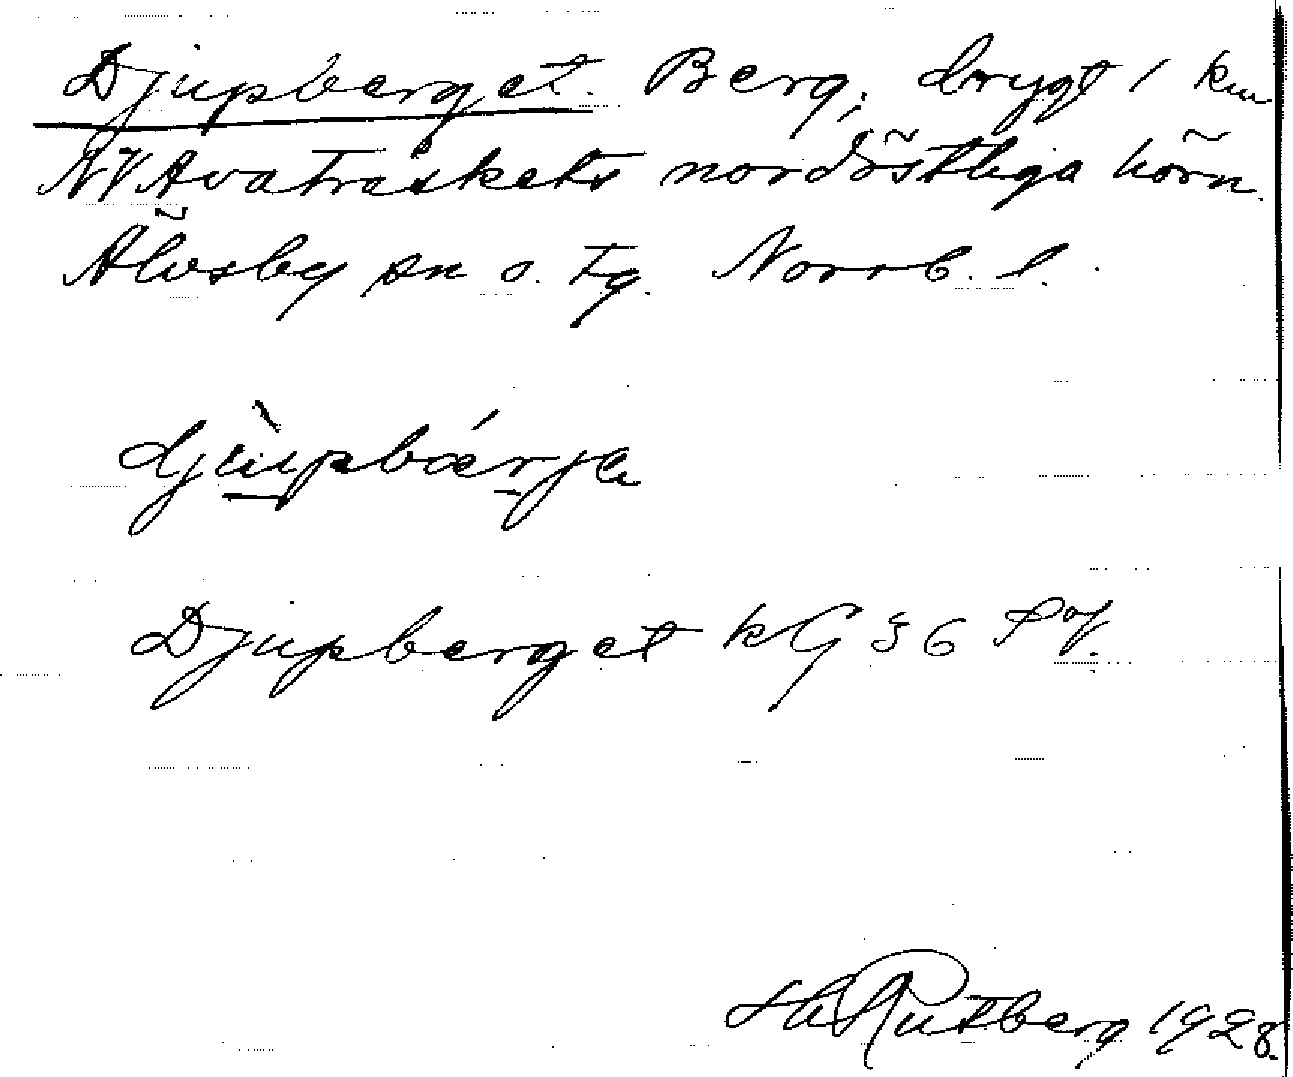 Djupberget. Berg, drygt 1 km
NV Avaträskets nordöstliga hörn.
Älvsby sn o. tg. Norrb. l.
djùpbǽrjə
Djupberget kG 36
Rutberg 1928.